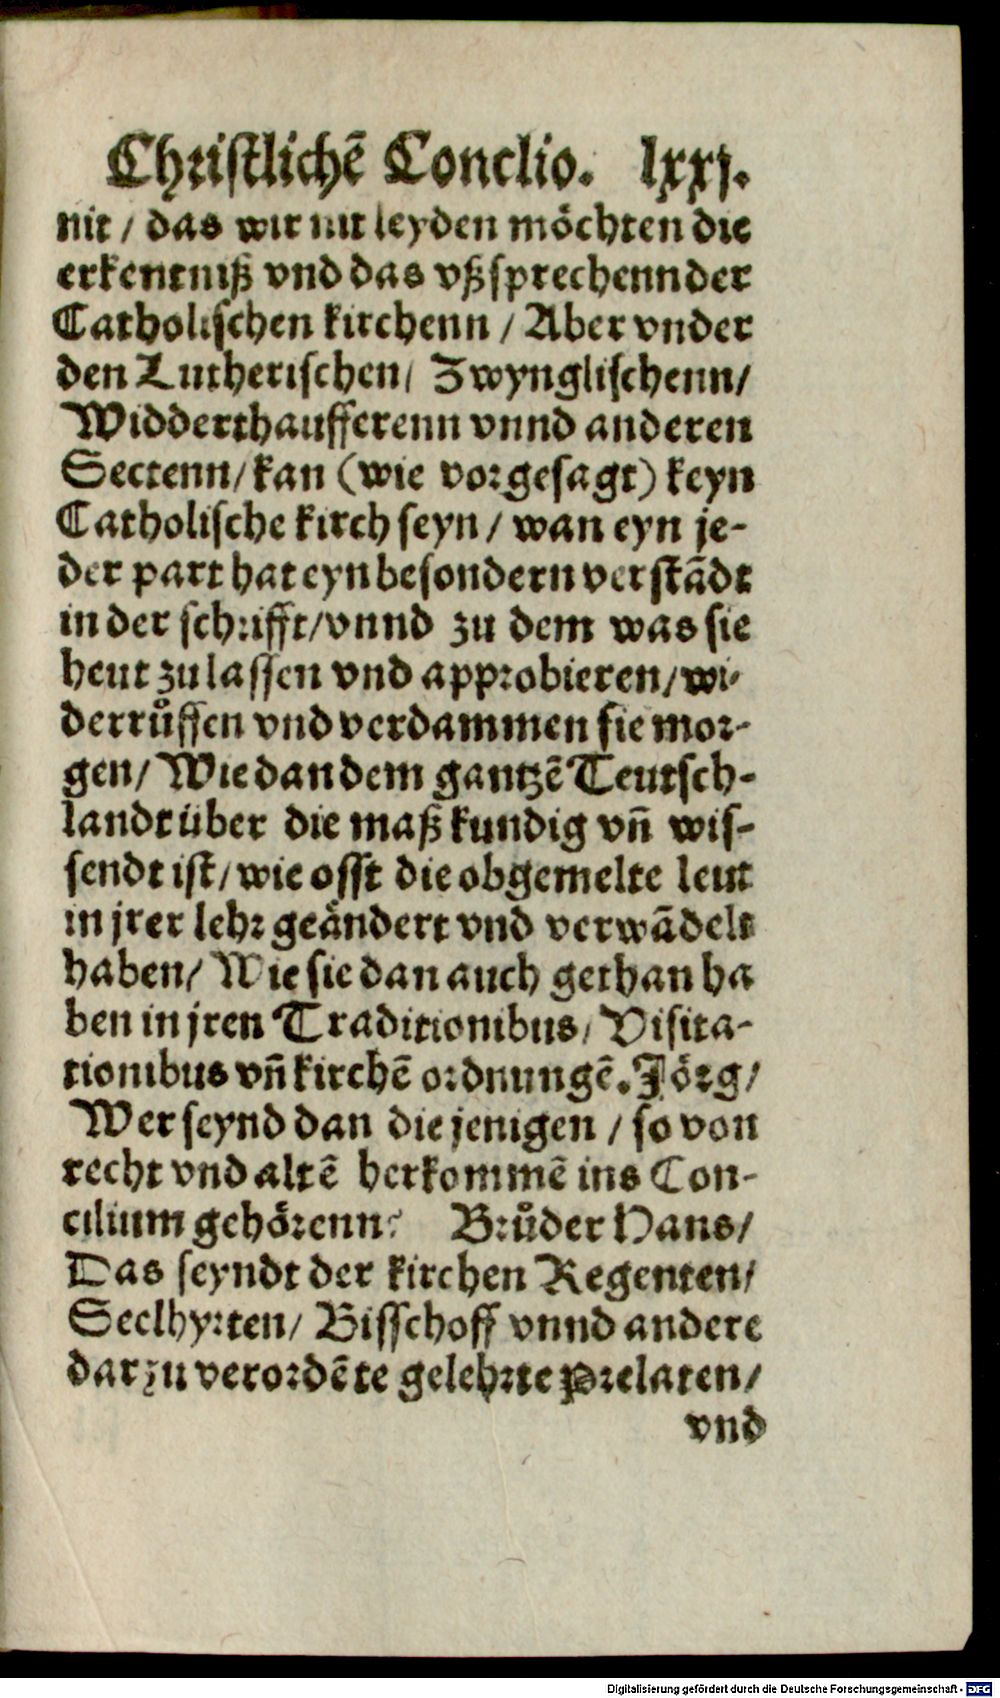 Christlichē Conclio. lxxj.
nit / das wir nit leyden möchten die
erkentniß vnd das vßsprechenn der
Catholischen kirchenn / Aber vnder
den Lutherischen / Zwynglischenn /
Widderthaufferenn vnnd anderen
Sectenn / kan (wie vorgesagt) keyn
Catholische kirch seyn / wan eyn je-
der part hat eyn besondern verstādt
in der schrifft / vnnd zu dem was sie
heut zulassen vnd approbieren / wi-
derrůffen vnd verdammen sie mor-
gen / Wie dan dem gantzē Teutsch-
landt über die maß kundig vñ wis-
sendt ist / wie offt die obgemelte leut
in jrer lehr geändert vnd verwādelt
haben / Wie sie dan auch gethan ha
ben in jren Traditionibus / Visita-
tionibus vñ kirchē ordnungē. Jörg /
Wer seynd dan die jenigen / so von
recht vnd altē herkommē ins Con-
cilium gehörenn? Brůder Hans /
Das seyndt der kirchen Regenten /
Seelhyrten / Bisschoff vnnd andere
darzu verordēte gelehrte Prelaten /
vnd
Digitalisierung gefördert durch die Deutsche Forschungsgemeinschaft - DFG